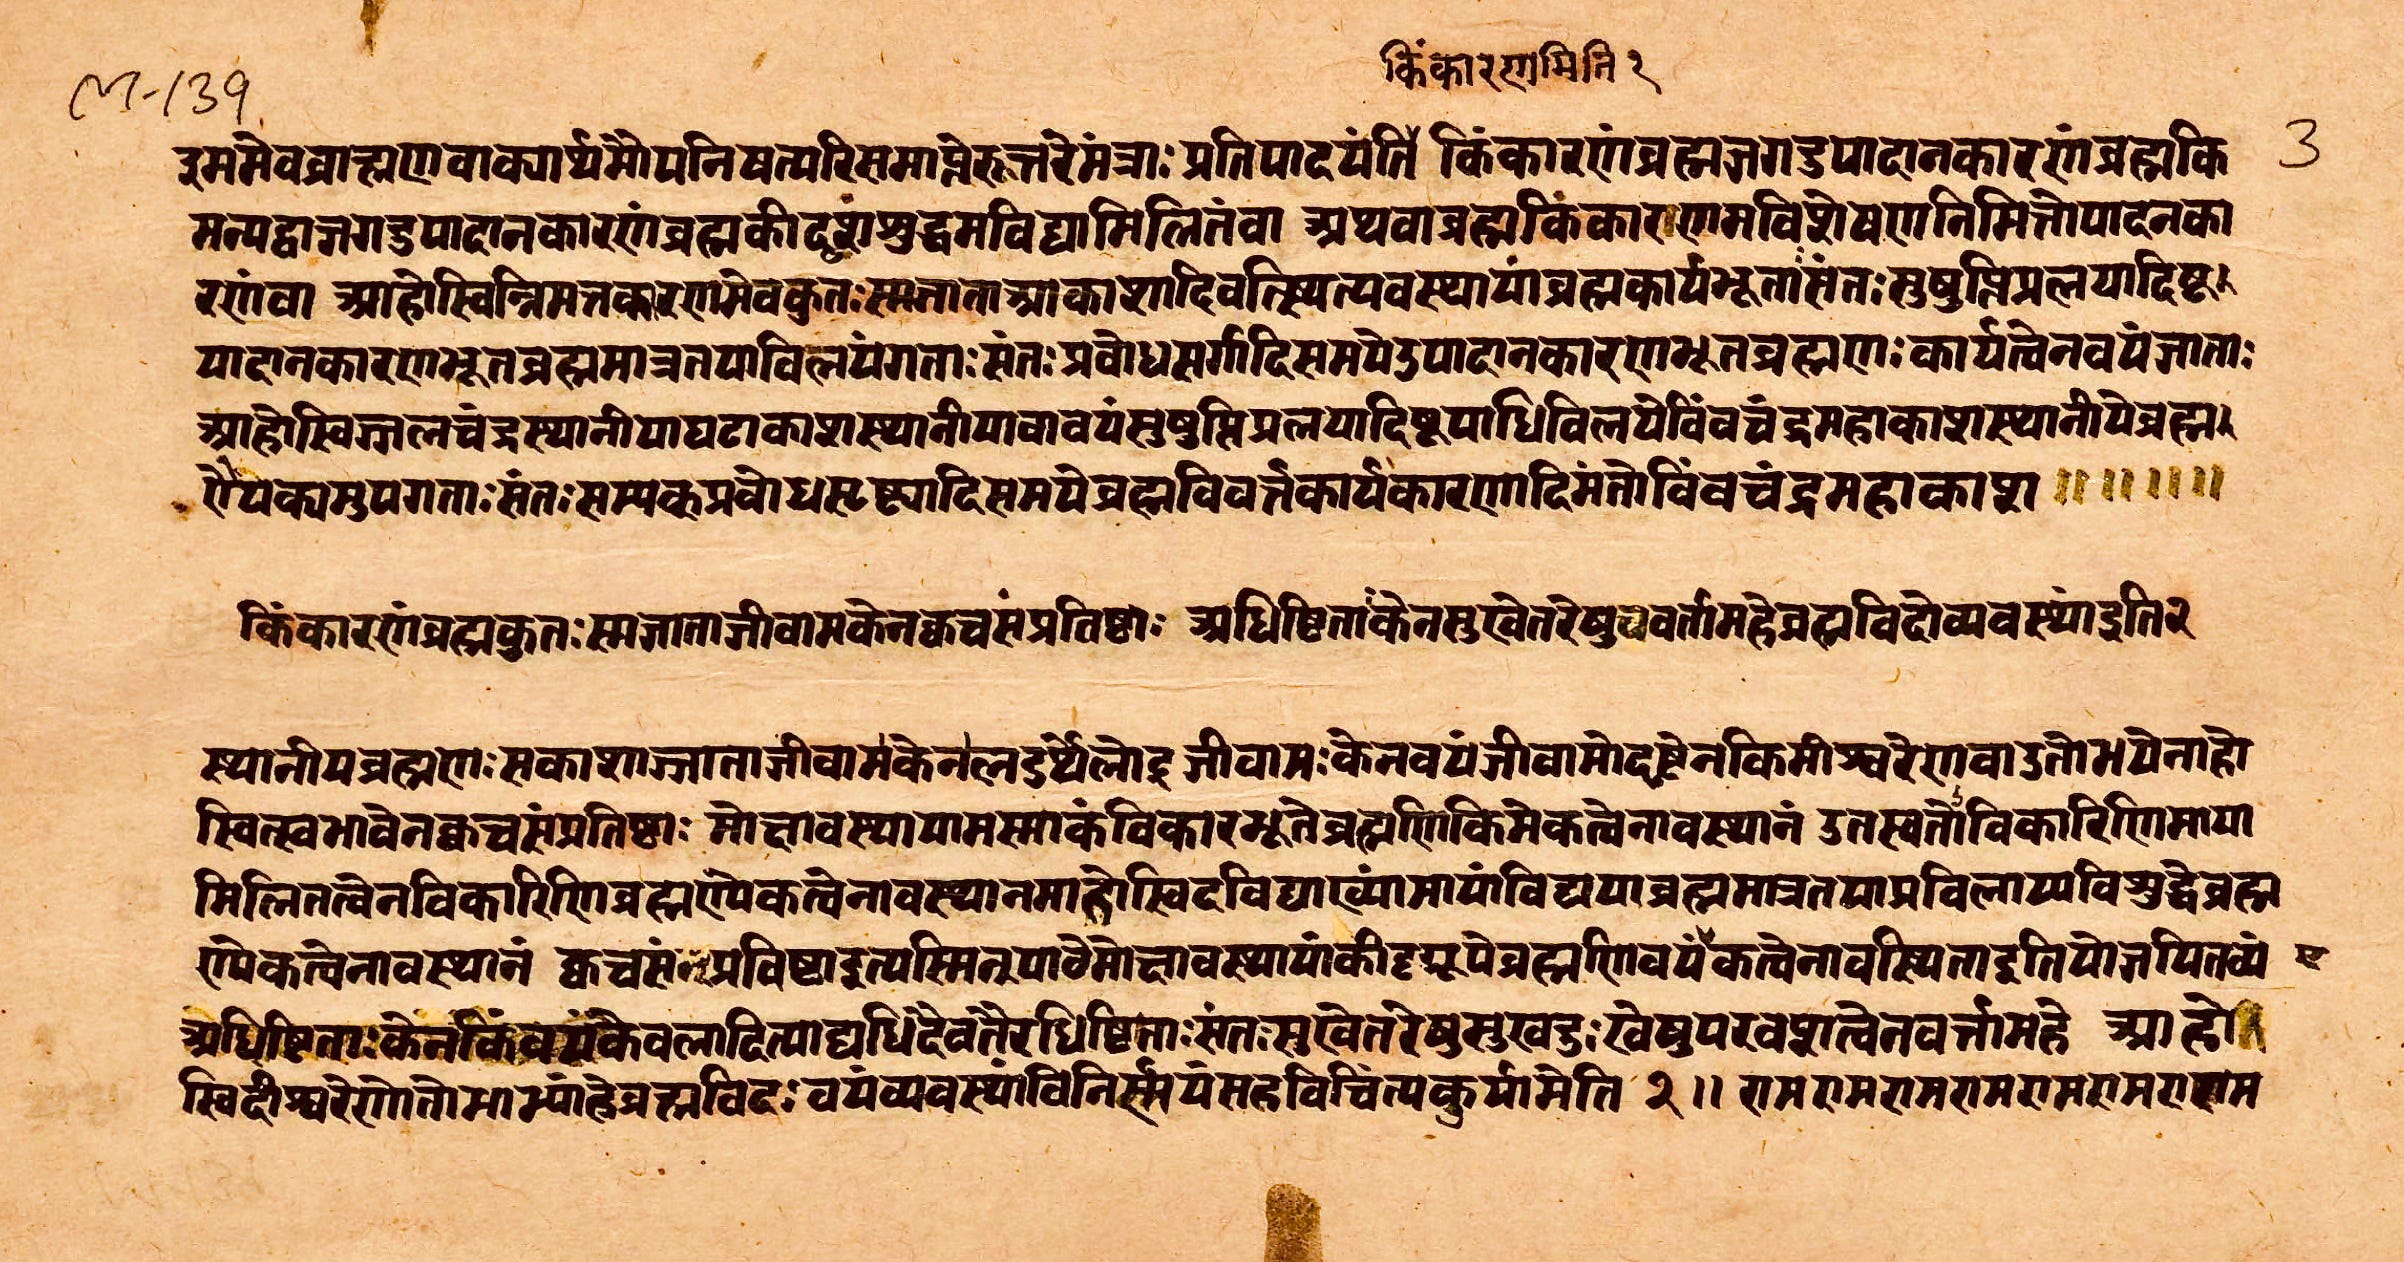 किंकारणमिति २
M-139
3
इममेवब्राह्मणवाक्यार्थमौपनिषत्परिसमाप्तेरुत्तरेमंत्राः प्रतिपादयंति किंकारणंब्रह्मजगदुपादानकारणंब्रह्मकि
मन्यद्वाजगदुपादानकारणंब्रह्मकीदृशंशुद्धमविद्यामिलितंवा अथवाब्रह्मकिंकारणमविशेषणनिमित्तोपादनका
रणंवा आहोस्विन्निमत्तकारणमेवकुतःस्मजाताआकाशादिवत्स्थित्यवस्थायांब्रह्मकार्यभूताःसंतःसुषुप्तिप्रलयादिषू
पादानकारणभूतब्रह्ममात्रतयाविलयंगताःसंतःप्रबोधसर्गादिसमयेउपादानकारणभूतब्रह्मणःकार्यत्वेनवयंजाताः
आहोस्विज्जलचंद्रस्थानीयाघटाकाशस्थानीयावावयंसुषुप्तिप्रलयादिषूपाधिविलयेविंवचंद्रमहाकाशस्थानीयेब्रह्म
ण्यैक्यमुपगताःसंतःसम्यक्प्रबोधसृष्ट्यादिसमयेब्रह्मविवर्त्तकार्यकारणादिमंतोविंवचंद्रमहाकाश ॥ ॥ ॥ ॥
किंकारणंब्रह्मकुतःस्मजाताजीवामकेनक्वचसंप्रतिष्ठाः अधिष्ठिताःकेनसुखेतरेषुवर्तामहेब्रह्मविदोव्यवस्थांइति२
स्थानीयब्रह्मणःसकाशाज्जाताजीवामकेनलडर्थेलोट् जीवामःकेनवयंजीवामोदृष्टेनकिमीश्वरेणवाउतोभयेनाहो
स्वित्स्वभावेनक्वचसंप्रतिष्ठाः मोक्षावस्थायामस्माकंविकारभूतेब्रह्मणिकिमेकत्वेनावस्थानं उतस्वतोविकारिणिमाया
मिलितत्वेनविकारिणिब्रह्मण्येकत्वेनावस्थानमाहोस्विदविद्याख्यांमायांविद्ययाब्रह्ममात्रतयाप्रविलाप्यविशुद्धेब्रह्म
ण्येकत्वेनावस्थानं क्वचसंप्रविष्टाइत्यस्मिन्पाठेमोक्षावस्थायांकीदृग्रूपेब्रह्मणिवयंकत्वेनावस्थिताइतियोजयितव्यं
अधिष्ठिताःकेनकिंवयंकेवलादित्याद्यधिदैवतैरधिष्ठिताःसंतःसुखेतरेषुसुखदुःखेषुपरवशत्वेनवर्त्तामहे आहो
स्विदीश्वरेणोतोभाभ्यांहेब्रह्मविदःवयंव्यवस्थांविनिर्स्मयंसहविचिंत्यकुर्यामेति २॥ रामरामरामरामरामरामरारम